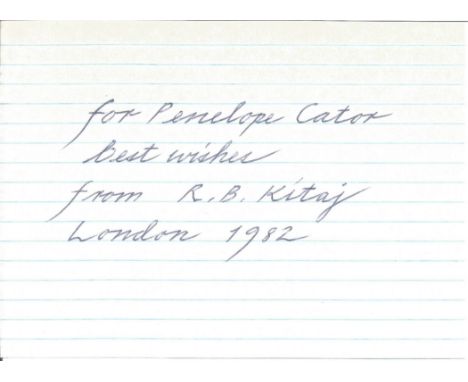 for Penelope Cator
best wishes
from R.B. Kitaj
London 1982